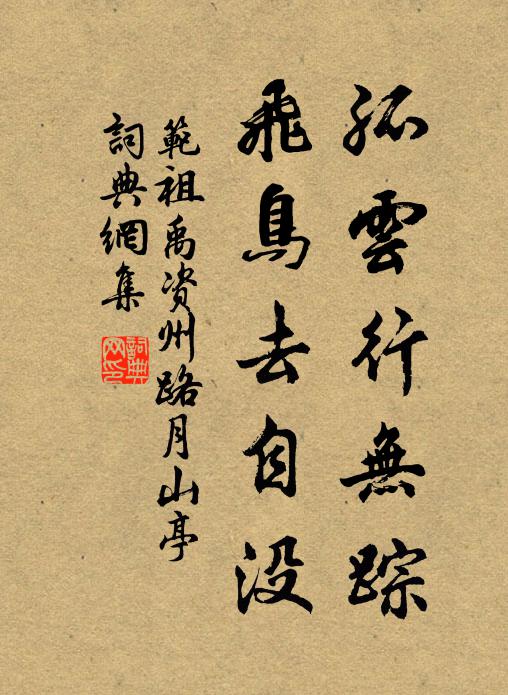 孤雲行無踪
飛鳥去自没
範祖禹資州路月山亭
詞典網集
詞典网印